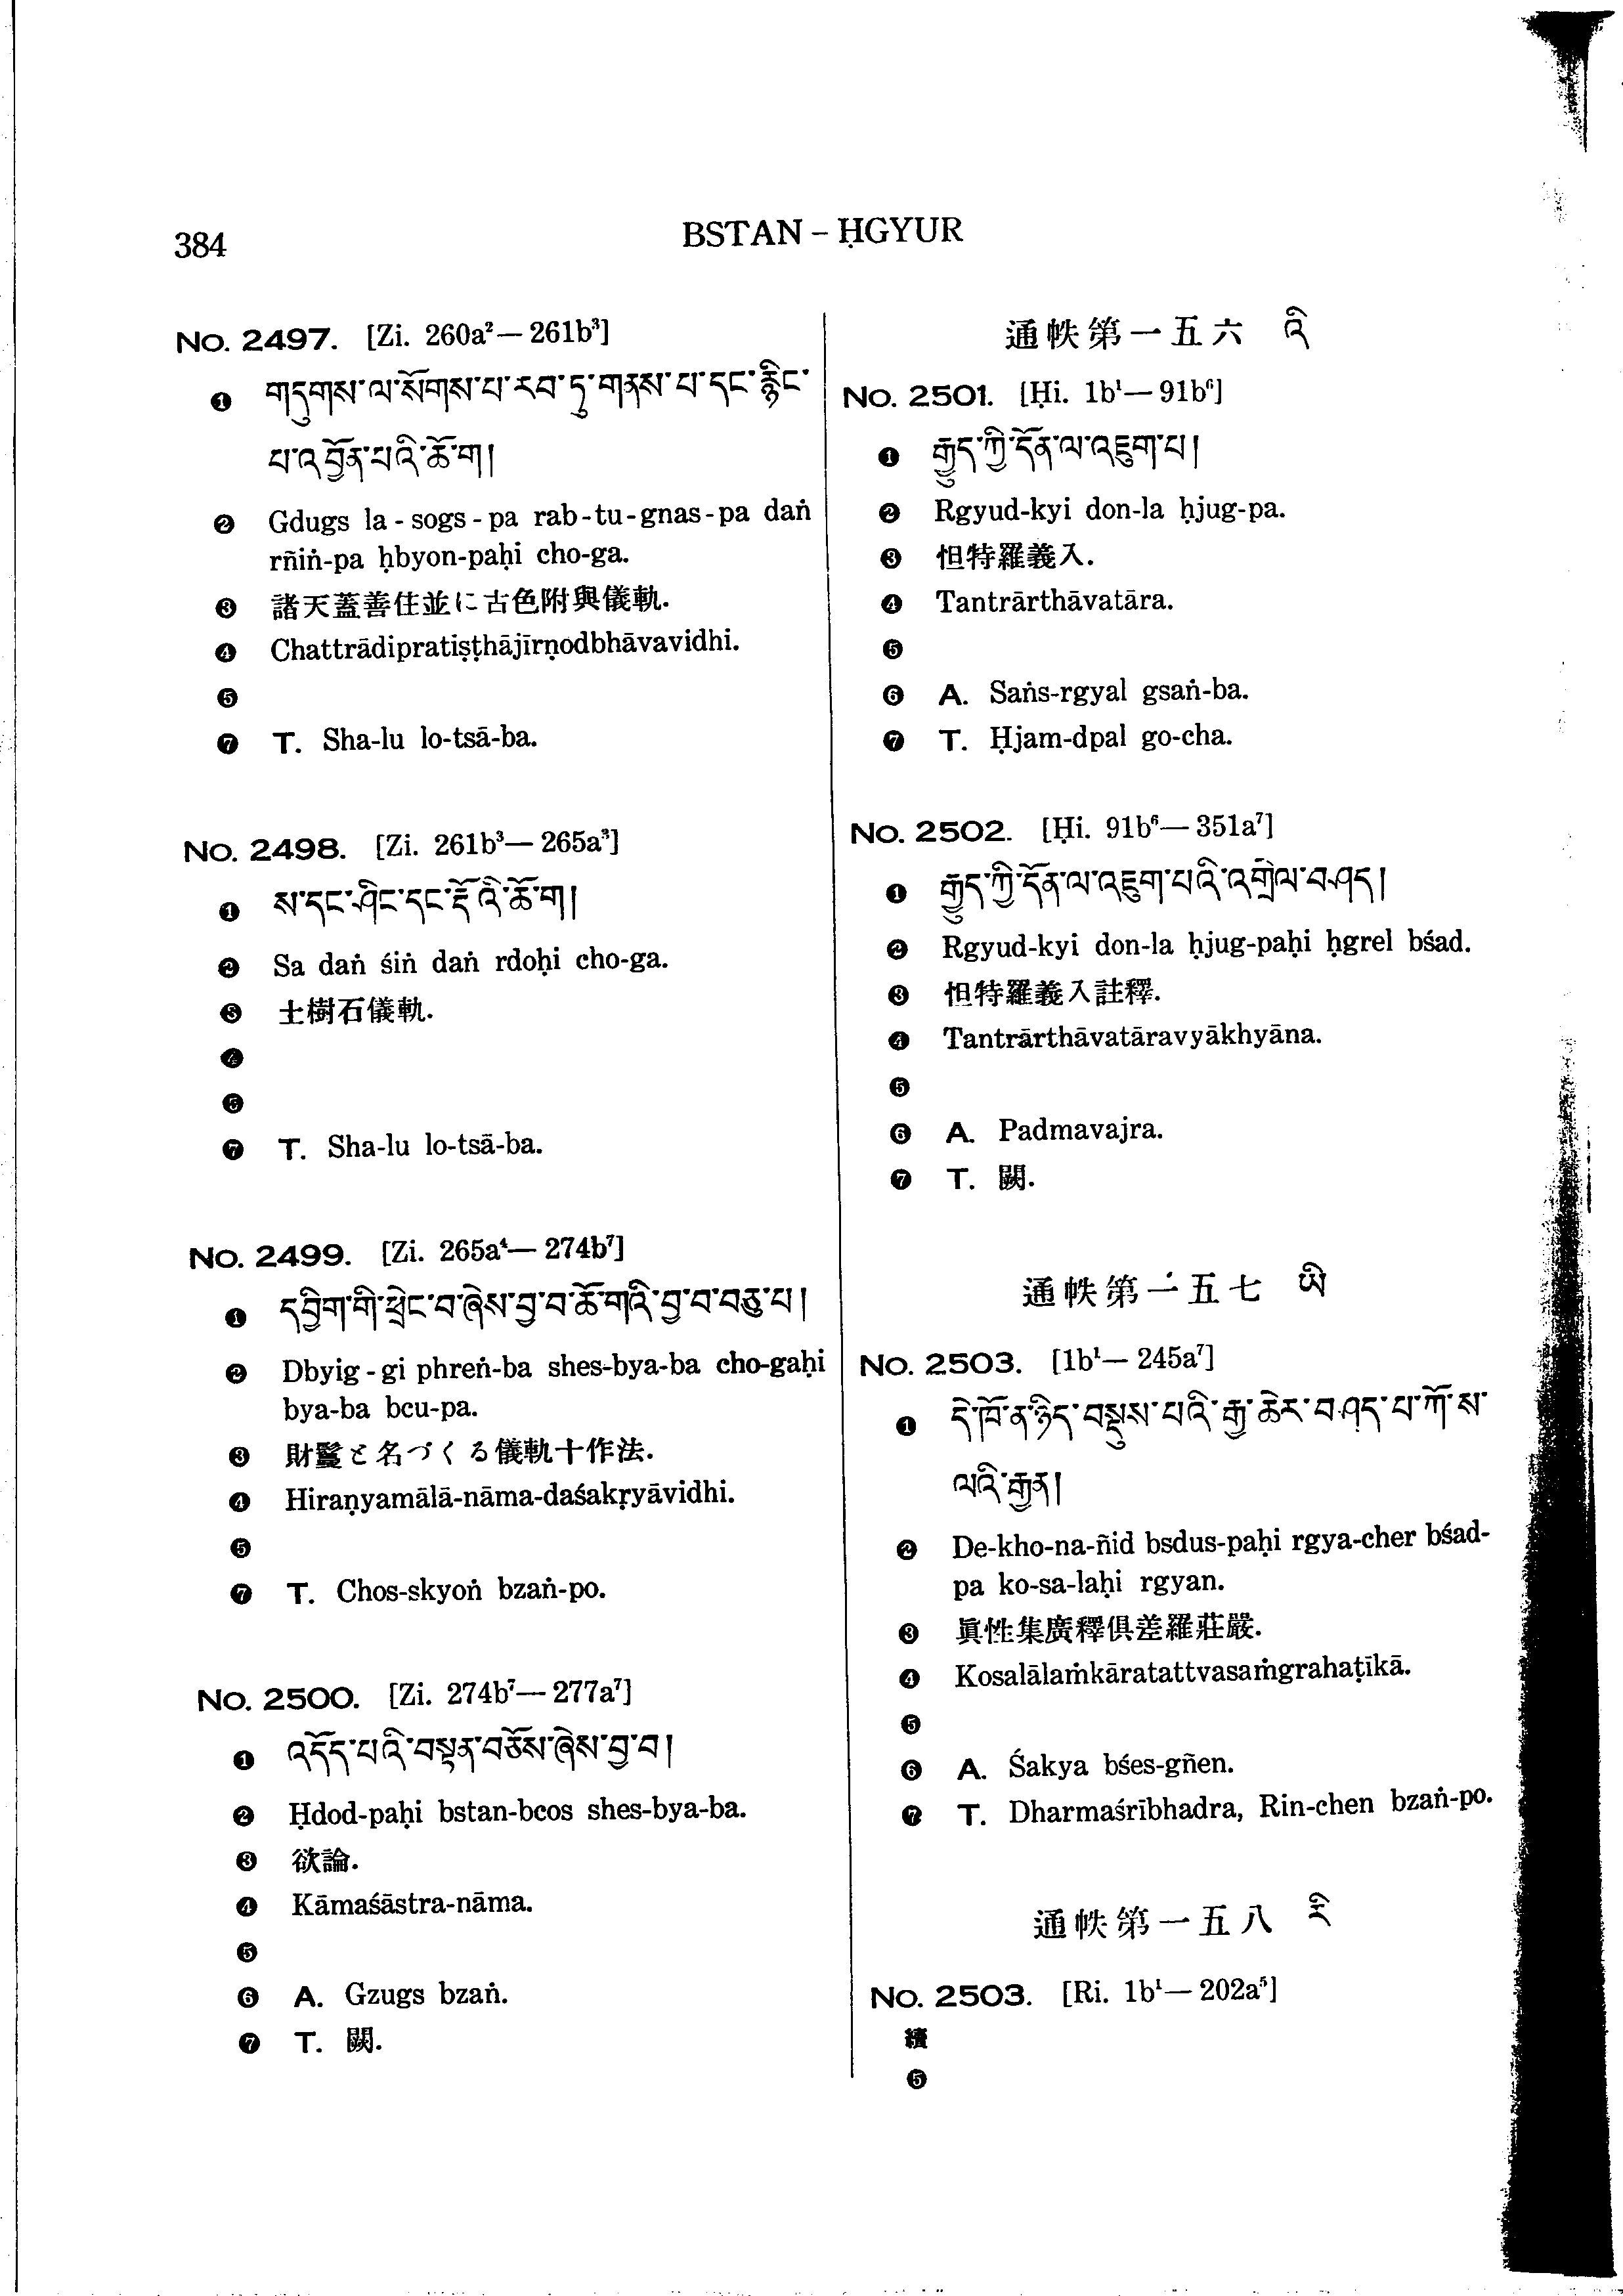 384
BSTAN – ḤGYUR
No. 2497. [Zi. 260a² — 261b³]
❶ གདུགས་ལ་སོགས་པ་རབ་ཏུ་གནས་པ་དང་རྙིང་
པ་འབྱོན་པའི་ཆོ་ག།
❷ Gdugs la-sogs-pa rab-tu-gnas-pa daṅ
rñiṅ-pa ḥbyon-paḥi cho-ga.
❸ 諸天蓋善住並に古色附與儀軌.
❹ Chattrādipratiṣṭhājīrṇodbhāvavidhi.
❺
❼ T. Sha-lu lo-tsā-ba.
No. 2498. [Zi. 261b³ — 265a³]
❶ ས་དང་ཤིང་དང་རྡོའི་ཆོ་ག།
❷ Sa daṅ śiṅ daṅ rdoḥi cho-ga.
❸ 土樹石儀軌.
❹
❺
❼ T. Sha-lu lo-tsā-ba.
No. 2499. [Zi. 265a⁴ — 274b⁷]
❶ དབྱིག་གི་ཕྲེང་བ་ཞེས་བྱ་བ་ཆོ་གའི་བྱ་བ་བཅུ་པ།
❷ Dbyig-gi phreṅ-ba shes-bya-ba cho-gaḥi
bya-ba bcu-pa.
❸ 財鬘と名づくる儀軌十作法.
❹ Hiraṇyamālā-nāma-daśakṛyāvidhi.
❺
❼ T. Chos-skyoṅ bzaṅ-po.
No. 2500. [Zi. 274b⁷ — 277a⁷]
❶ འདོད་པའི་བསྟན་བཅོས་ཞེས་བྱ་བ།
❷ Ḥdod-paḥi bstan-bcos shes-bya-ba.
❸ 欲論.
❹ Kāmaśāstra-nāma.
❺
❻ A. Gzugs bzaṅ.
❼ T. 闕.
通帙第一五六 འི
No. 2501. [Ḥi. 1b¹ — 91b⁶]
❶ རྒྱུད་ཀྱི་དོན་ལ་འཇུག་པ།
❷ Rgyud-kyi don-la ḥjug-pa.
❸ 怛特羅義入.
❹ Tantrārthāvatāra.
❺
❻ A. Saṅs-rgyal gsaṅ-ba.
❼ T. Ḥjam-dpal go-cha.
No. 2502. [Ḥi. 91b⁶ — 351a⁷]
❶ རྒྱུད་ཀྱི་དོན་ལ་འཇུག་པའི་འགྲེལ་བཤད།
❷ Rgyud-kyi don-la ḥjug-paḥi ḥgrel bśad.
❸ 怛特羅義入註釋.
❹ Tantrārthāvatāravyākhyāna.
❺
❻ A. Padmavajra.
❼ T. 闕.
通帙第一五七 ཡི
No. 2503. [1b¹ — 245a⁷]
❶ དེ་ཁོ་ན་ཉིད་བསྡུས་པའི་རྒྱ་ཆེར་བཤད་པ་ཀོ་ས་
ལའི་རྒྱན།
❷ De-kho-na-ñid bsdus-paḥi rgya-cher bśad-
pa ko-sa-laḥi rgyan.
❸ 眞性集廣釋俱差羅莊嚴.
❹ Kosalālaṁkāratattvasaṁgrahaṭīkā.
❺
❻ A. Śakya bśes-gñen.
❼ T. Dharmaśrībhadra, Rin-chen bzaṅ-po.
通帙第一五八 རི
No. 2503. [Ri. 1b¹ — 202a⁵]
續
❺